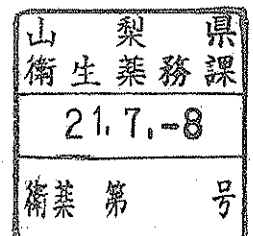 山梨県
衛生薬務課
21.7.-8
衛薬第 号